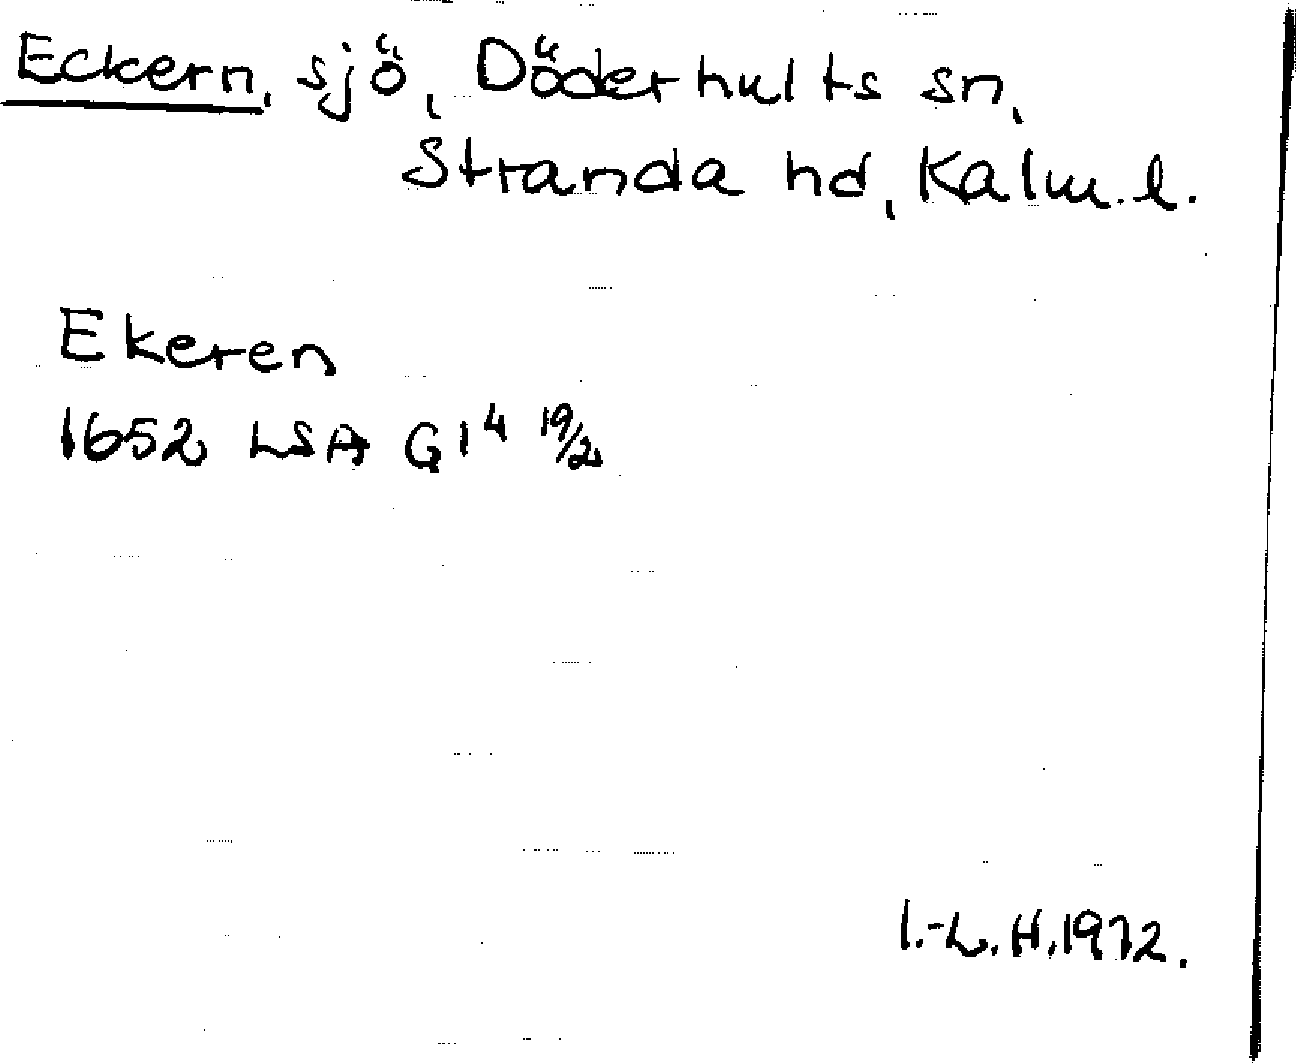 Eckern, sjö, Döderhults sn,
Stranda hd, Kalm. l.
Ekeren
1652 LSA G1⁴ 19/2
I.-L. H. 1972.